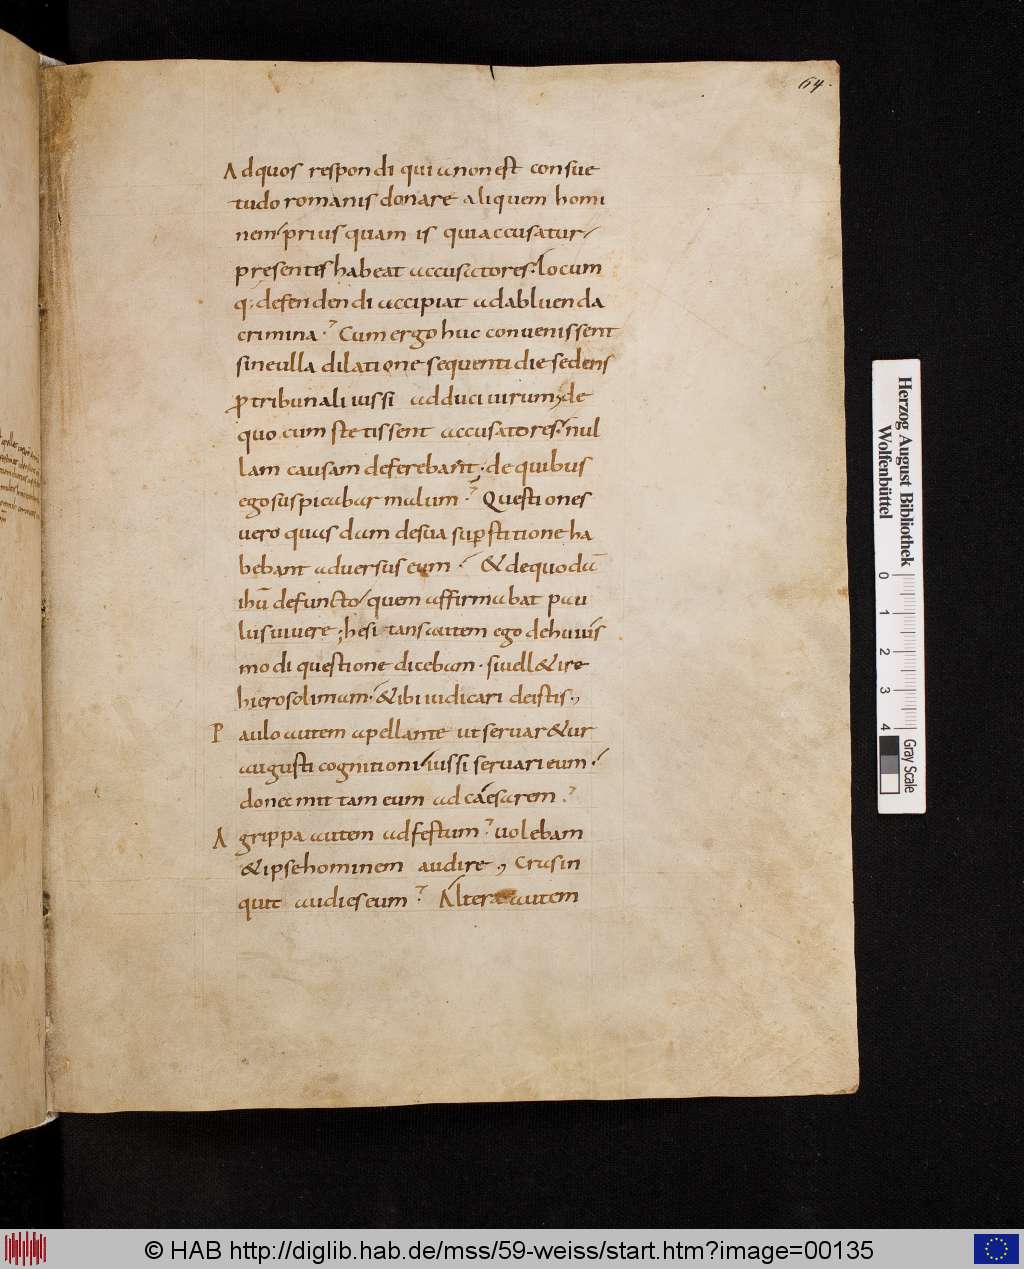 64
Ad quos respondi quia non est consue
tudo romanis donare aliquem homi
nem prius quam is qui accusatur
presentes habeat accusatores. locum
q: defendendi accipiat ad abluenda
crimina. Cum ergo huc convenissent
sine ulla dilatione sequenti die sedens
p tribunali iussi adduci uirum; de
quo cum stetissent accusatores. nul
lam causam deferebant. de quibus
ego suspicabar malum. Questiones
uero quasdam de sua supstitione ha
bebant aduersus eum. & de quodā
ihū defuncto quem affirmabat pau
lus uiuere; hesitans autem ego de huius
modi questione dicebam. si uell& ire
hierosolimam. & ibi iudicari de istis,
Paulo autem apellante ut seruar&ur
augusti cognitioni iussi seruari eum.
donec mittam eum ad caesarem.
Agrippa autem ad festum. uolebam
& ipse hominem audire, Cras in
quit audies eum. Altera autem
Herzog August Bibliothek
Wolfenbüttel
0 1 2 3 4
Gray Scale
© HAB http://diglib.hab.de/mss/59-weiss/start.htm?image=00135